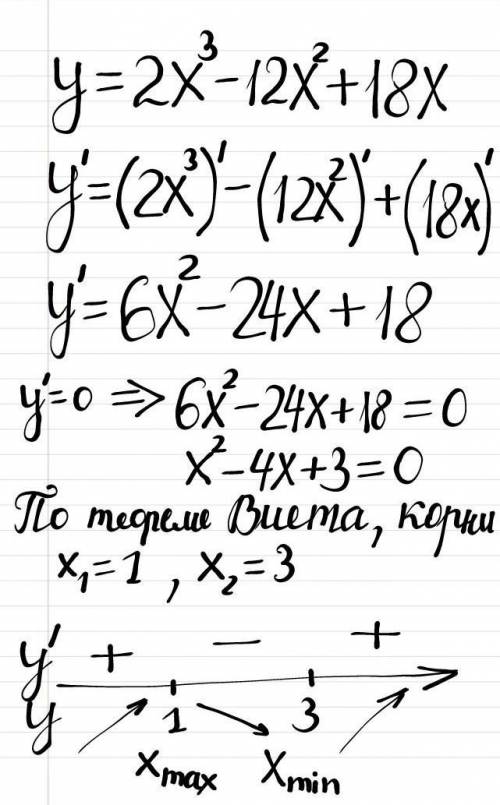 y=2x³-12x²+18x
y'=(2x³)'-(12x²)'+(18x)'
y'=6x²-24x+18
y'=0 => 6x²-24x+18=0
x²-4x+3=0
По теореме Виета, корни
x₁=1 , x₂=3
y' + - +
y 1 3
x max x min